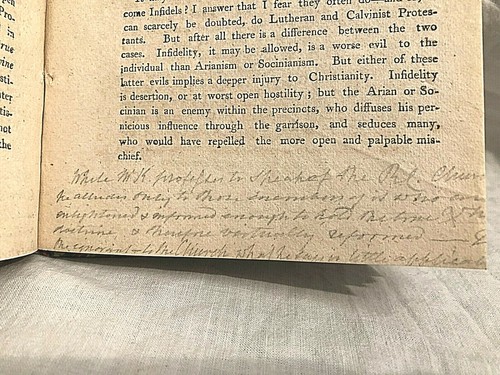 Pro-
in
rue
vine
sti-
ter
tis-
not
the
come Infidels? I answer that I fear they often do—and
can scarcely be doubted, do Lutheran and Calvinist Protes-
tants. But after all there is a difference between the two
cases. Infidelity, it may be allowed, is a worse evil to the
individual than Arianism or Socinianism. But either of these
latter evils implies a deeper injury to Christianity. Infidelity
is desertion, or at worst open hostility; but the Arian or So-
cinian is an enemy within the precincts, who diffuses his per-
nicious influence through the garrison, and seduces many,
who would have repelled the more open and palpable mis-
chief.
While Mr K professes to speak of the
he alludes only to those members of it who are
enlightened & informed enough to hold the true
doctrine, & therefore virtually reformed —
the ignorant to the Church, what he says is little applicable